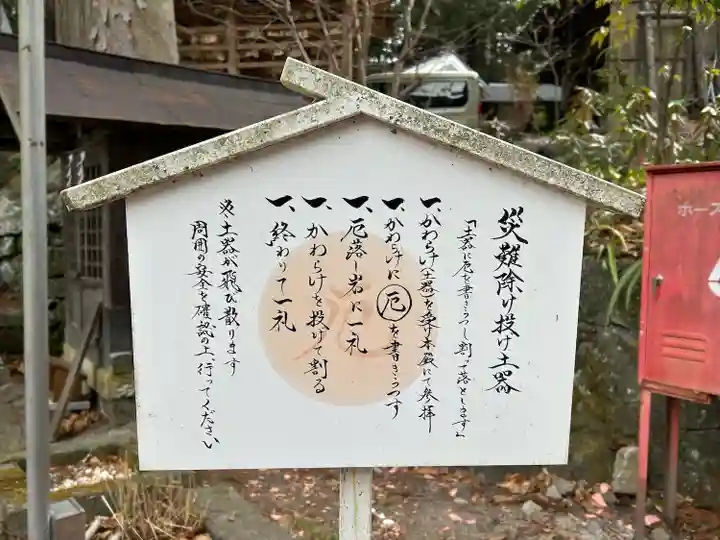 災難除け投げ土器
「土器に厄を書きうつし割って落とします」
一、かわらけ(土器)を受け本殿にて参拝
一、かわらけに厄を書きうつす
一、厄落し岩に一礼
一、かわらけを投げて割る
一、終わりて一礼
※土器が飛び散ります
周囲の安全を確認の上、行ってください
ホース